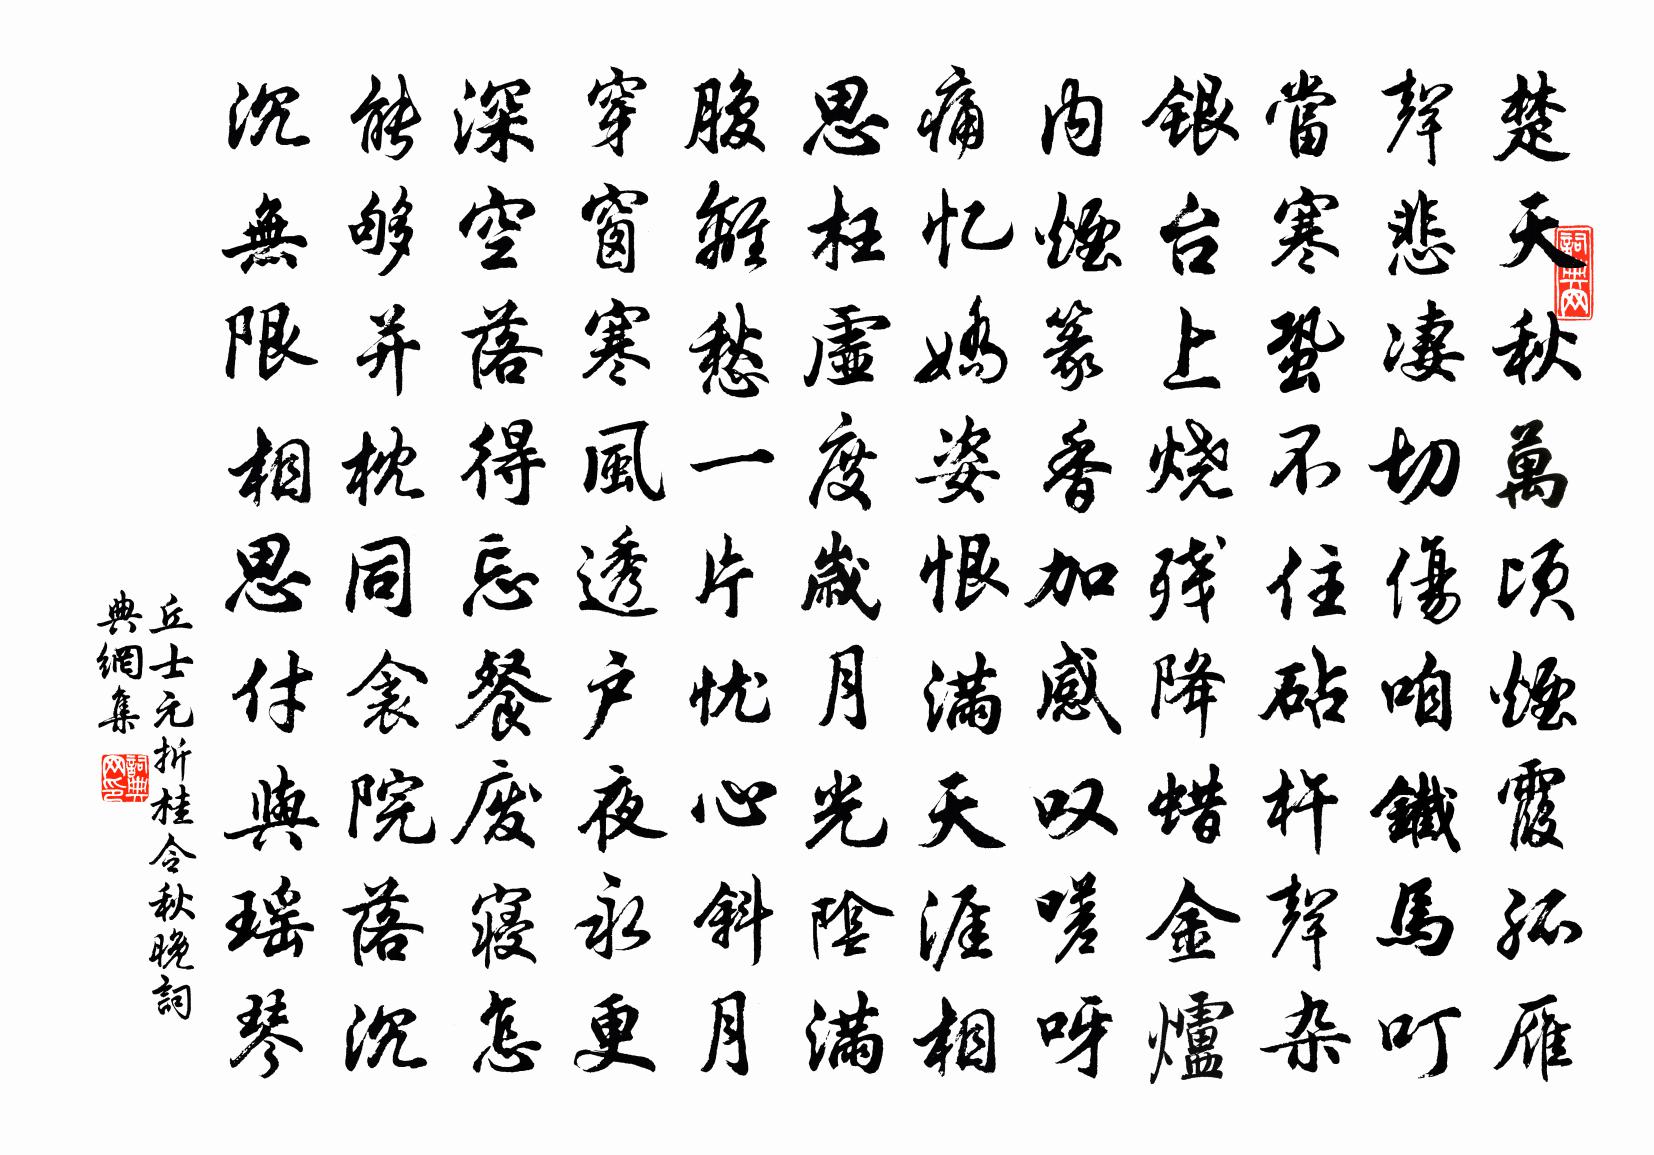 楚天秋萬頃煙霞孤雁
聲悲凄切傷咱鐵馬叮
當寒蛩不住砧杵聲杂
銀台上烧残降蜡金爐
内煙篆香加感叹嗟呀
痛忆嬌姿恨满天涯相
思枉虛度歲月光陰满
腹離愁一片忧心斜月
穿窗寒風透户夜永更
深空落得忘餐废寝怎
能够并枕同衾院落沉
沉無限相思付與瑶琴
丘士元折桂令秋晚詞
典網集
詞典网
詞典网印